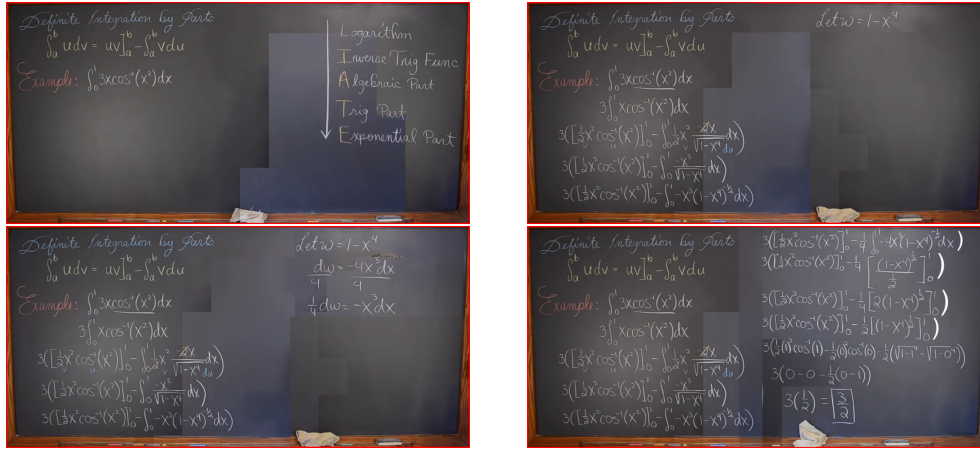 Definite Integration by Parts
∫₀ᵇ u dv = uv]ₐᵇ - ∫ₐᵇ v du
Example: ∫₀¹ 3x cos⁻¹(x²) dx
Logarithm
Inverse Trig Func
Algebraic Part
Trig Part
Exponential Part
Definite Integration by Parts
∫ₐᵇ u dv = uv]ₐᵇ - ∫ₐᵇ v du
Example: ∫₀¹ 3x cos⁻¹(x²) dx
3∫₀¹ x cos⁻¹(x²) dx
3([½x² cos⁻¹(x²)]₀¹ - ∫₀¹ ½x² · -2x/√(1-x⁴) dx)
3([½x² cos⁻¹(x²)]₀¹ - ∫₀¹ -x³/√(1-x⁴) dx)
3([½x² cos⁻¹(x²)]₀¹ - ∫₀¹ -x³(1-x⁴)^-½ dx)
Let w = 1-x⁴
Definite Integration by Parts
∫ₐᵇ u dv = uv]ₐᵇ - ∫ₐᵇ v du
Example: ∫₀¹ 3x cos⁻¹(x²) dx
3∫₀¹ x cos⁻¹(x²) dx
3([½x² cos⁻¹(x²)]₀¹ - ∫₀¹ ½x² · -2x/√(1-x⁴) dx)
3([½x² cos⁻¹(x²)]₀¹ - ∫₀¹ -x³/√(1-x⁴) dx)
3([½x² cos⁻¹(x²)]₀¹ - ∫₀¹ -x³(1-x⁴)^-½ dx)
Let w = 1-x⁴
dw/4 = -4x³dx/4
¼dw = -x³dx
Definite Integration by Parts
∫ₐᵇ u dv = uv]ₐᵇ - ∫ₐᵇ v du
Example: ∫₀¹ 3x cos⁻¹(x²) dx
3∫₀¹ x cos⁻¹(x²) dx
3([½x² cos⁻¹(x²)]₀¹ - ∫₀¹ ½x² · -2x/√(1-x⁴) dx)
3([½x² cos⁻¹(x²)]₀¹ - ∫₀¹ -x³/√(1-x⁴) dx)
3([½x² cos⁻¹(x²)]₀¹ - ∫₀¹ -x³(1-x⁴)^-½ dx)
3([½x² cos⁻¹(x²)]₀¹ - ¼ ∫₀¹ -4x³(1-x⁴)^-½ dx)
3([½x² cos⁻¹(x²)]₀¹ - ¼ [(1-x⁴)^½/½]₀¹)
3([½x² cos⁻¹(x²)]₀¹ - ¼[2(1-x⁴)^½]₀¹)
3([½x² cos⁻¹(x²)]₀¹ - ½[(1-x⁴)^½]₀¹)
3(½(1)² cos⁻¹(1) - ½(0)² cos⁻¹(0) - ½(√(1-1⁴) - √(1-0⁴)))
3(0 - 0 - ½(0-1))
3(½) = 3/2